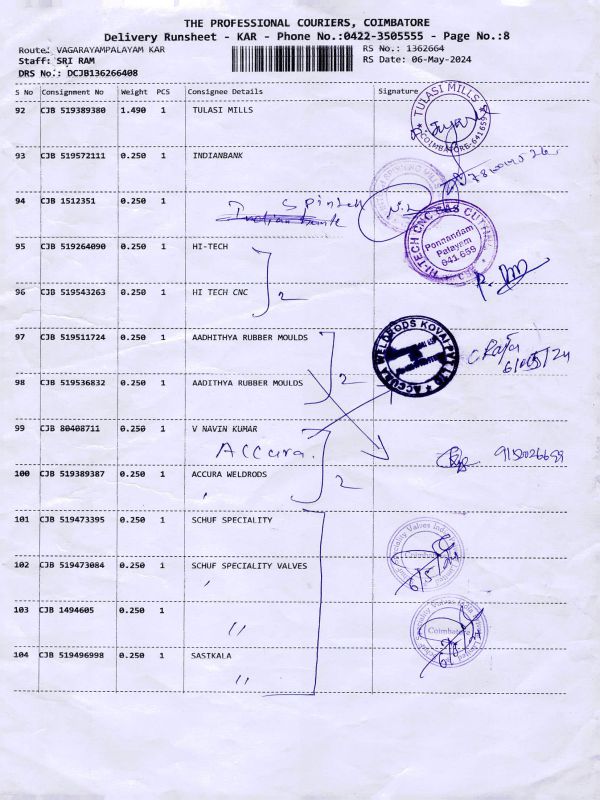 THE PROFESSIONAL COURIERS, COIMBATORE
Delivery Runsheet - KAR - Phone No.:0422-3505555 - Page No.:8
Route: VAGARAYAMPALAYAM KAR
RS No.: 1362664
Staff: SRI RAM
RS Date: 06-May-2024
DRS No.: DCJB136266408
S No Consignment No Weight PCS Consignee Details Signature
92 CJB 519389380 1.490 1 TULASI MILLS
TULASI MILLS
COIMBATORE-641659
93 CJB 519572111 0.250 1 INDIANBANK
94 CJB 1512351 0.250 1
Spintex
Indian bank
HI-TECH CNC
Ponnandam
Palayam
641 659
95 CJB 519264090 0.250 1 HI-TECH
2
96 CJB 519543263 0.250 1 HI TECH CNC
97 CJB 519511724 0.250 1 AADHITHYA RUBBER MOULDS
ACCURA WELDRODS KOVAI PVT LTD
C. Raja
6/05/24
2
98 CJB 519536832 0.250 1 AADITHYA RUBBER MOULDS
99 CJB 80408711 0.250 1 V NAVIN KUMAR
Accura.
100 CJB 519389387 0.250 1 ACCURA WELDRODS
2
101 CJB 519473395 0.250 1 SCHUF SPECIALITY
102 CJB 519473084 0.250 1 SCHUF SPECIALITY VALVES
6/5/24
103 CJB 1494605 0.250 1
"
Coimbatore
104 CJB 519496998 0.250 1 SASTKALA
"